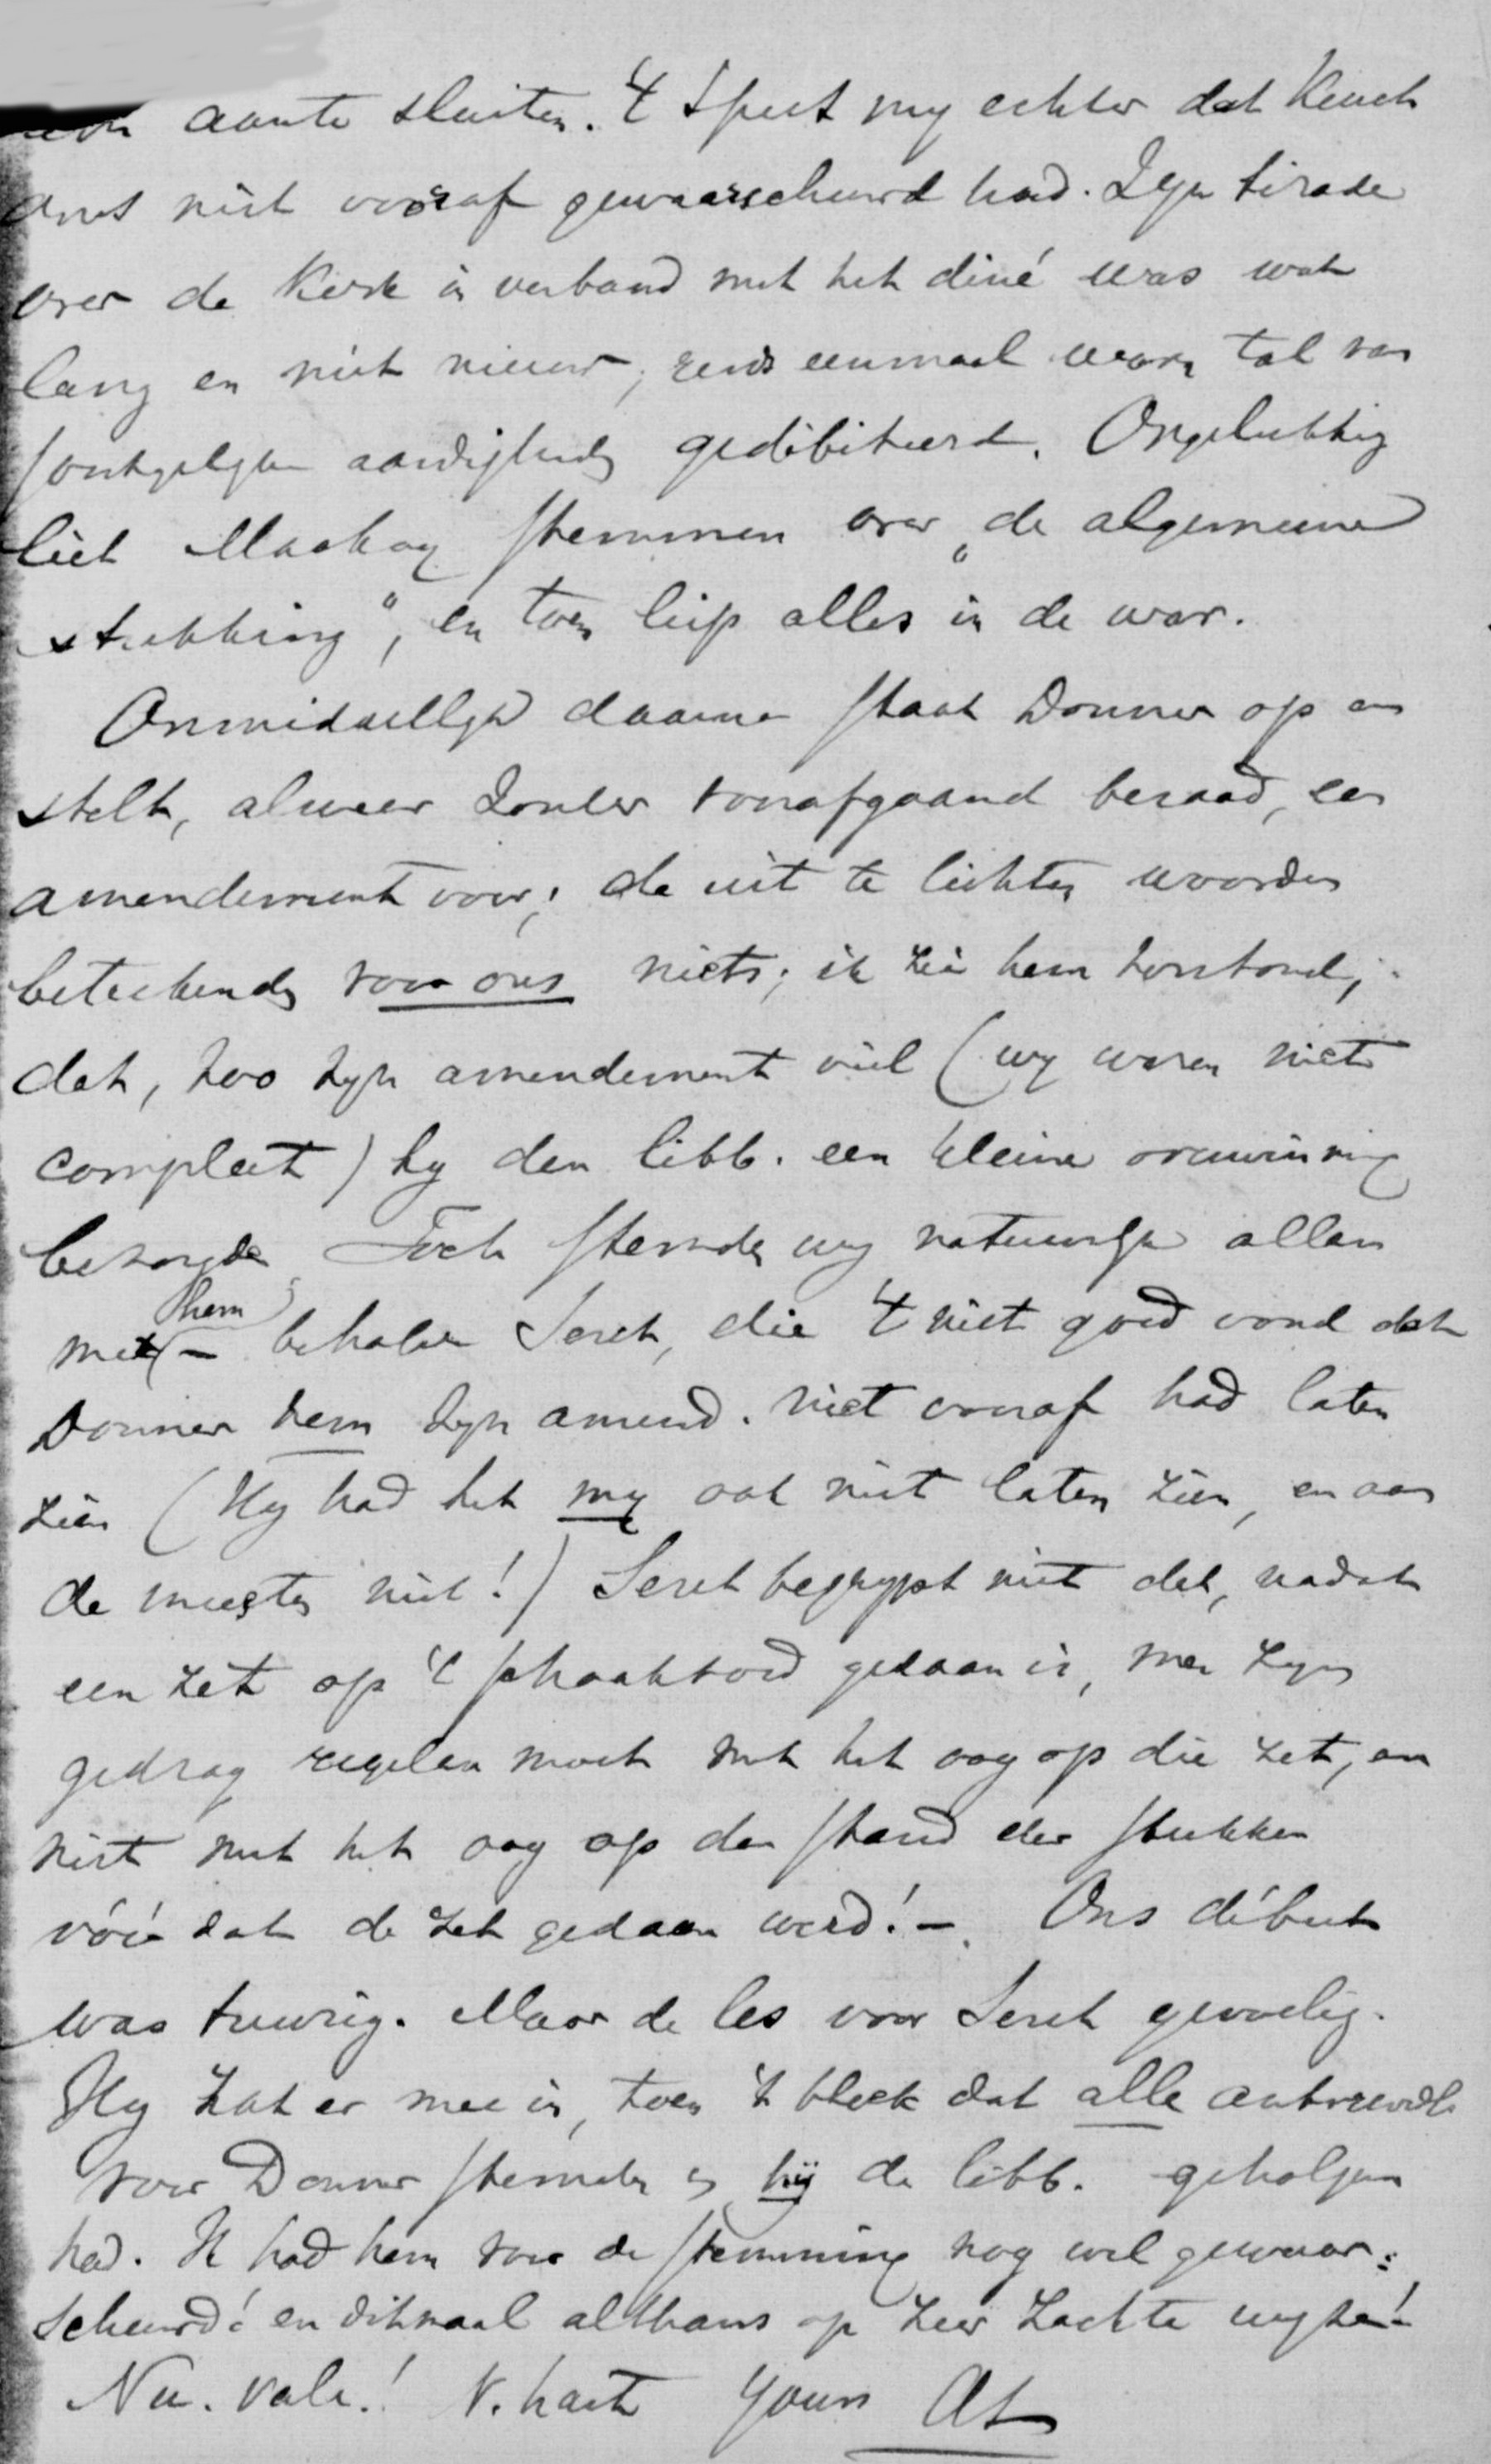 aan te sluiten. 't Speet my echter dat Keuch
ons niet vooraf gewaarschuwd had. Zyn tirade
over de Kerk in verband met het diné was wat
lang en niet nieuw; reeds eenmaal waren tal van
soortgelyke aardigheden gedébiteerd. Ongelukkig
liet Mackay stemmen over „de algemeene
strekking", en toen liep alles in de war.
Onmiddellyk daarna staat Donner op en
stelt, alweer zonder voorafgaand beraad, een
amendement voor; de uit te lichten woorden
beteekenden voor ons niets; ik zei hem terstond,
dat, zoo zyn amendement viel (wy waren niet
compleet) hy den libb. een kleine overwinning
bezorgde. Toch stemden wy natuurlyk allen
met hem – behalve Seret, die 't niet goed vond dat
Donner hem zyn amend. niet vooraf had laten
zien (Hy had het my ook niet laten zien, en aan
de meesten niet!) Seret begrypt niet dat, nadat
een zet op 't schaakbord gedaan is, men zyn
gedrag regelen moet met het oog op die zet, en
niet met het oog op den stand der stukken
vóór dat de zet gedaan werd! – Ons début
was treurig. Maar de les voor Seret gevoelig.
Hy zat er mee in, toen 't bleek dat alle antirevol.
voor Donner stemden en hij de libb. geholpen
had. Ik had hem voor de stemming nog wel gewaar-
schuwd! en ditmaal althans op zeer zachte wyze!
Nu. Vale! V. harte Yours AL